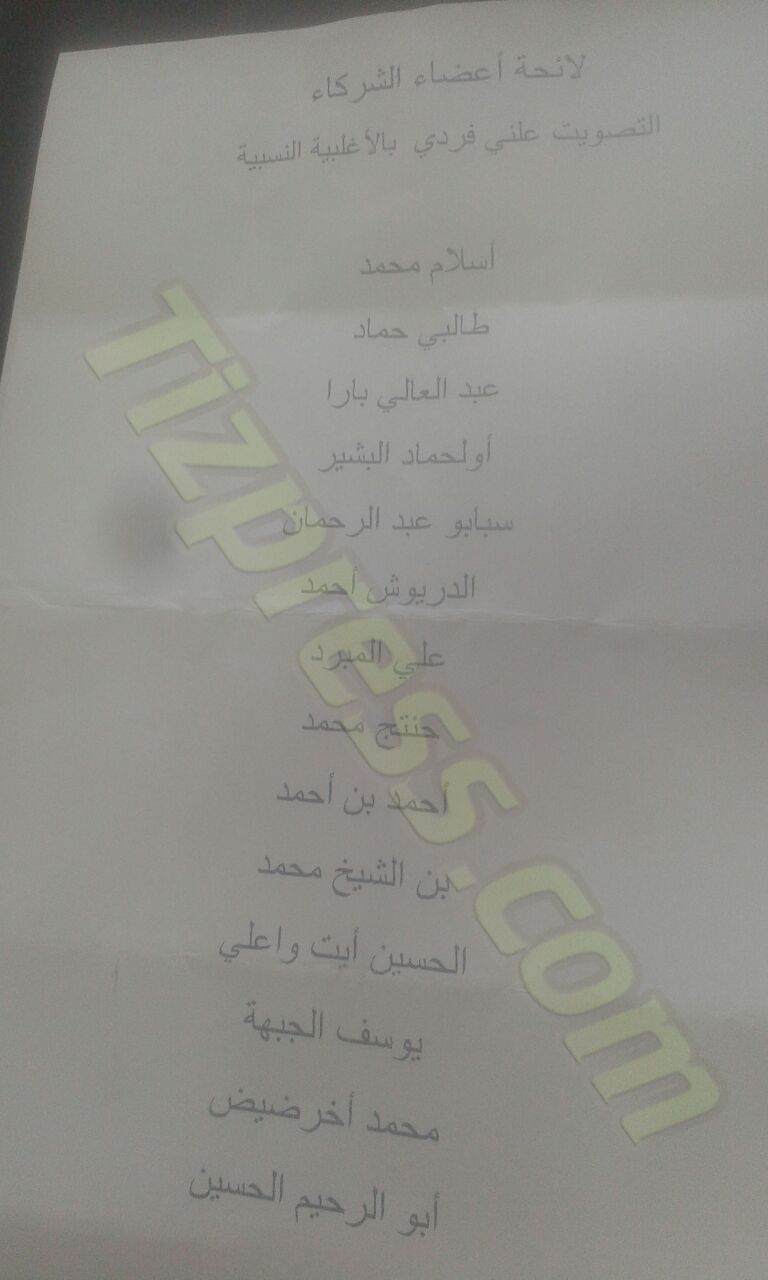 لائحة أعضاء الشركاء
التصويت علني فردي بالأغلبية النسبية
أسلام محمد
طالبي حماد
عبد العالي بارا
أولحماد البشير
سبابو عبد الرحمان
الدريوش أحمد
علي المبرد
حنتج محمد
أحمد بن أحمد
بن الشيخ محمد
الحسين أيت واعلي
يوسف الجبهة
محمد أخرضيض
أبو الرحيم الحسين
Tizpress.com